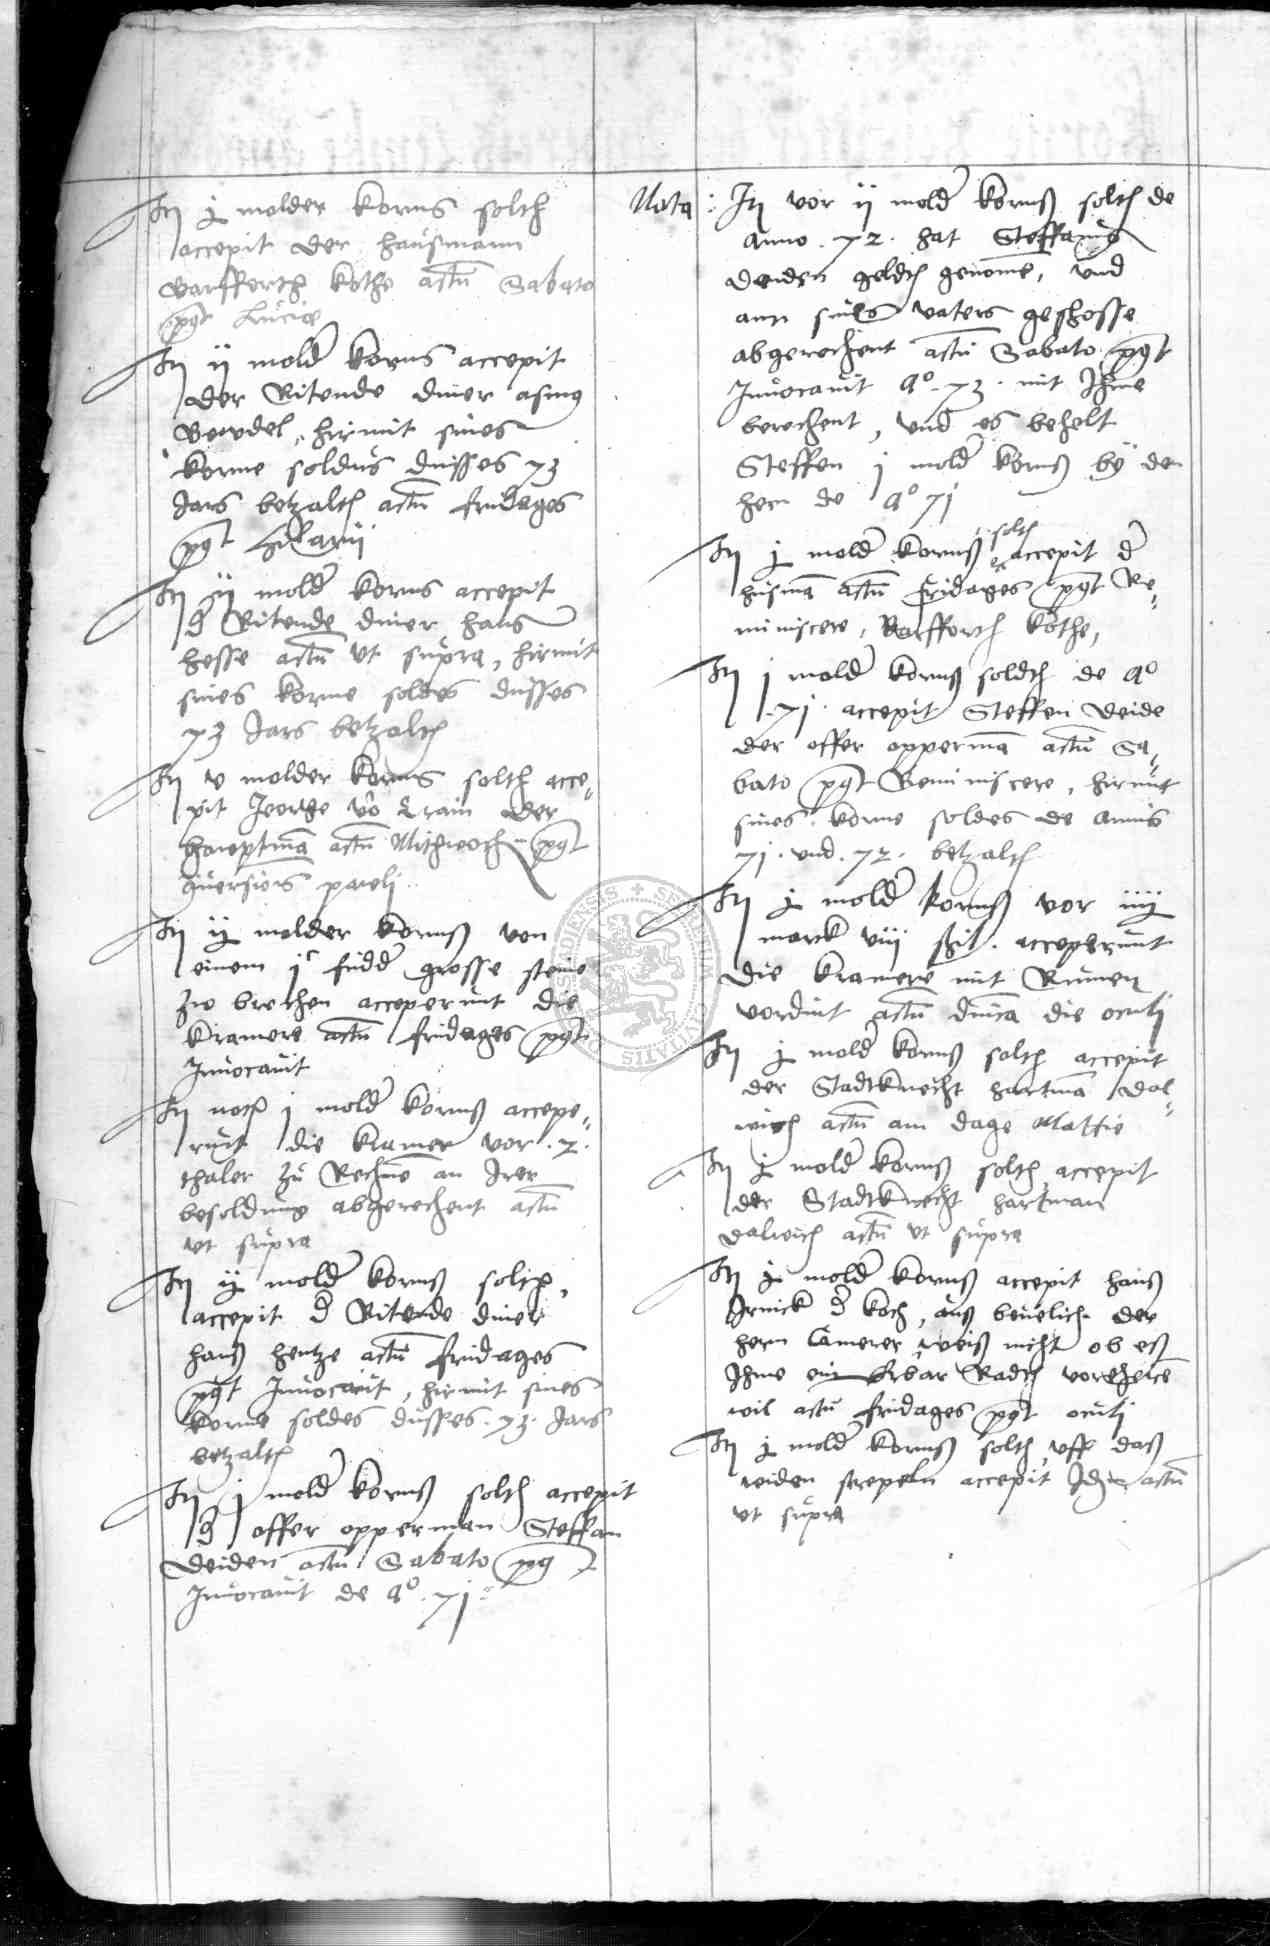 It j molder korns solth
accepit der hausmann
Barfferth kothe actu Sabato
pgt Lucie
It ij mold korns accepit
der Ritende diner asmg
hirmit sines
korne soldus dusses 73
Jars betzalth actu fridages
pgt Hilarii
It ij mold korns accepit
d Ritende diner hans
hesse actu ut supra, hirmit
sines korne soldes dusses
73 Jars betzalth
It v molder korns solth acce=
pit Jeorge vo der
haueptma actu Mithwoch pgt
quersiois pauli
It ij molder kornß von
einem grosse steine
zu brechen acceperunt die
kramere actu fridages pgt
Inuocauit
It noch j mold kornß accepe=
runt die kramer vor .2.
thaler zu Rechne an Irer
besoldung abgerechent actu
ut supra
It ij mold kornß solth,
accepit d Ritende diner
hanß hentze actu fridages
pgt Inuocauit, hirmit sines
korne soldes dusses .73. Jars
betzalth
It j mold kornß solth accepit
d offer opperman Steffan
Deiden actu Sabato pg t
Inuocauit de ao .7j.
Nota : It vor ij mold kornß solth de
anno .72. hat Steffanus
Deiden geldth genome, und
ann sines vaters geschosse
abgerechent actu Sabato pgt
Inuocauit ao .73. mit Ihme
berechent, und es behelt
Steffen j mold kornß by den
hern de ao 7j
solth
It j mold kornß accepit d
husma actu fridages pgt Re=
miniscere, Barfforth kothe,
It j mold kornß soldth de ao
.7j. accepit Steffen Deide
der offer opperma actu Sa=
bato pgt Reminiscere, hirmit
sines korne soldes de annis
7j. und .72. betzalth
It j mold kornß vor iiij
marck viij shil. acceperunt
die kramere mit Rumen
vordint actu dnica die oculi
It j mold kornß solth accepit
der Stadtknecht hartma dal=
wich actu am dage Mattie
It j mold kornß solth accepit
der Stadtknecht hartman
dalwich actu ut supra
It j mold kornß accepit hanß
d koch, auß beuelich der
hern Camerer, weiß nicht ob eß
Ihme ein Erbar Radth vorehere
wil actu fridages pgt oculi
It j mold kornß solth uff daß
weiden strepeln accepit Ide actu
ut supra